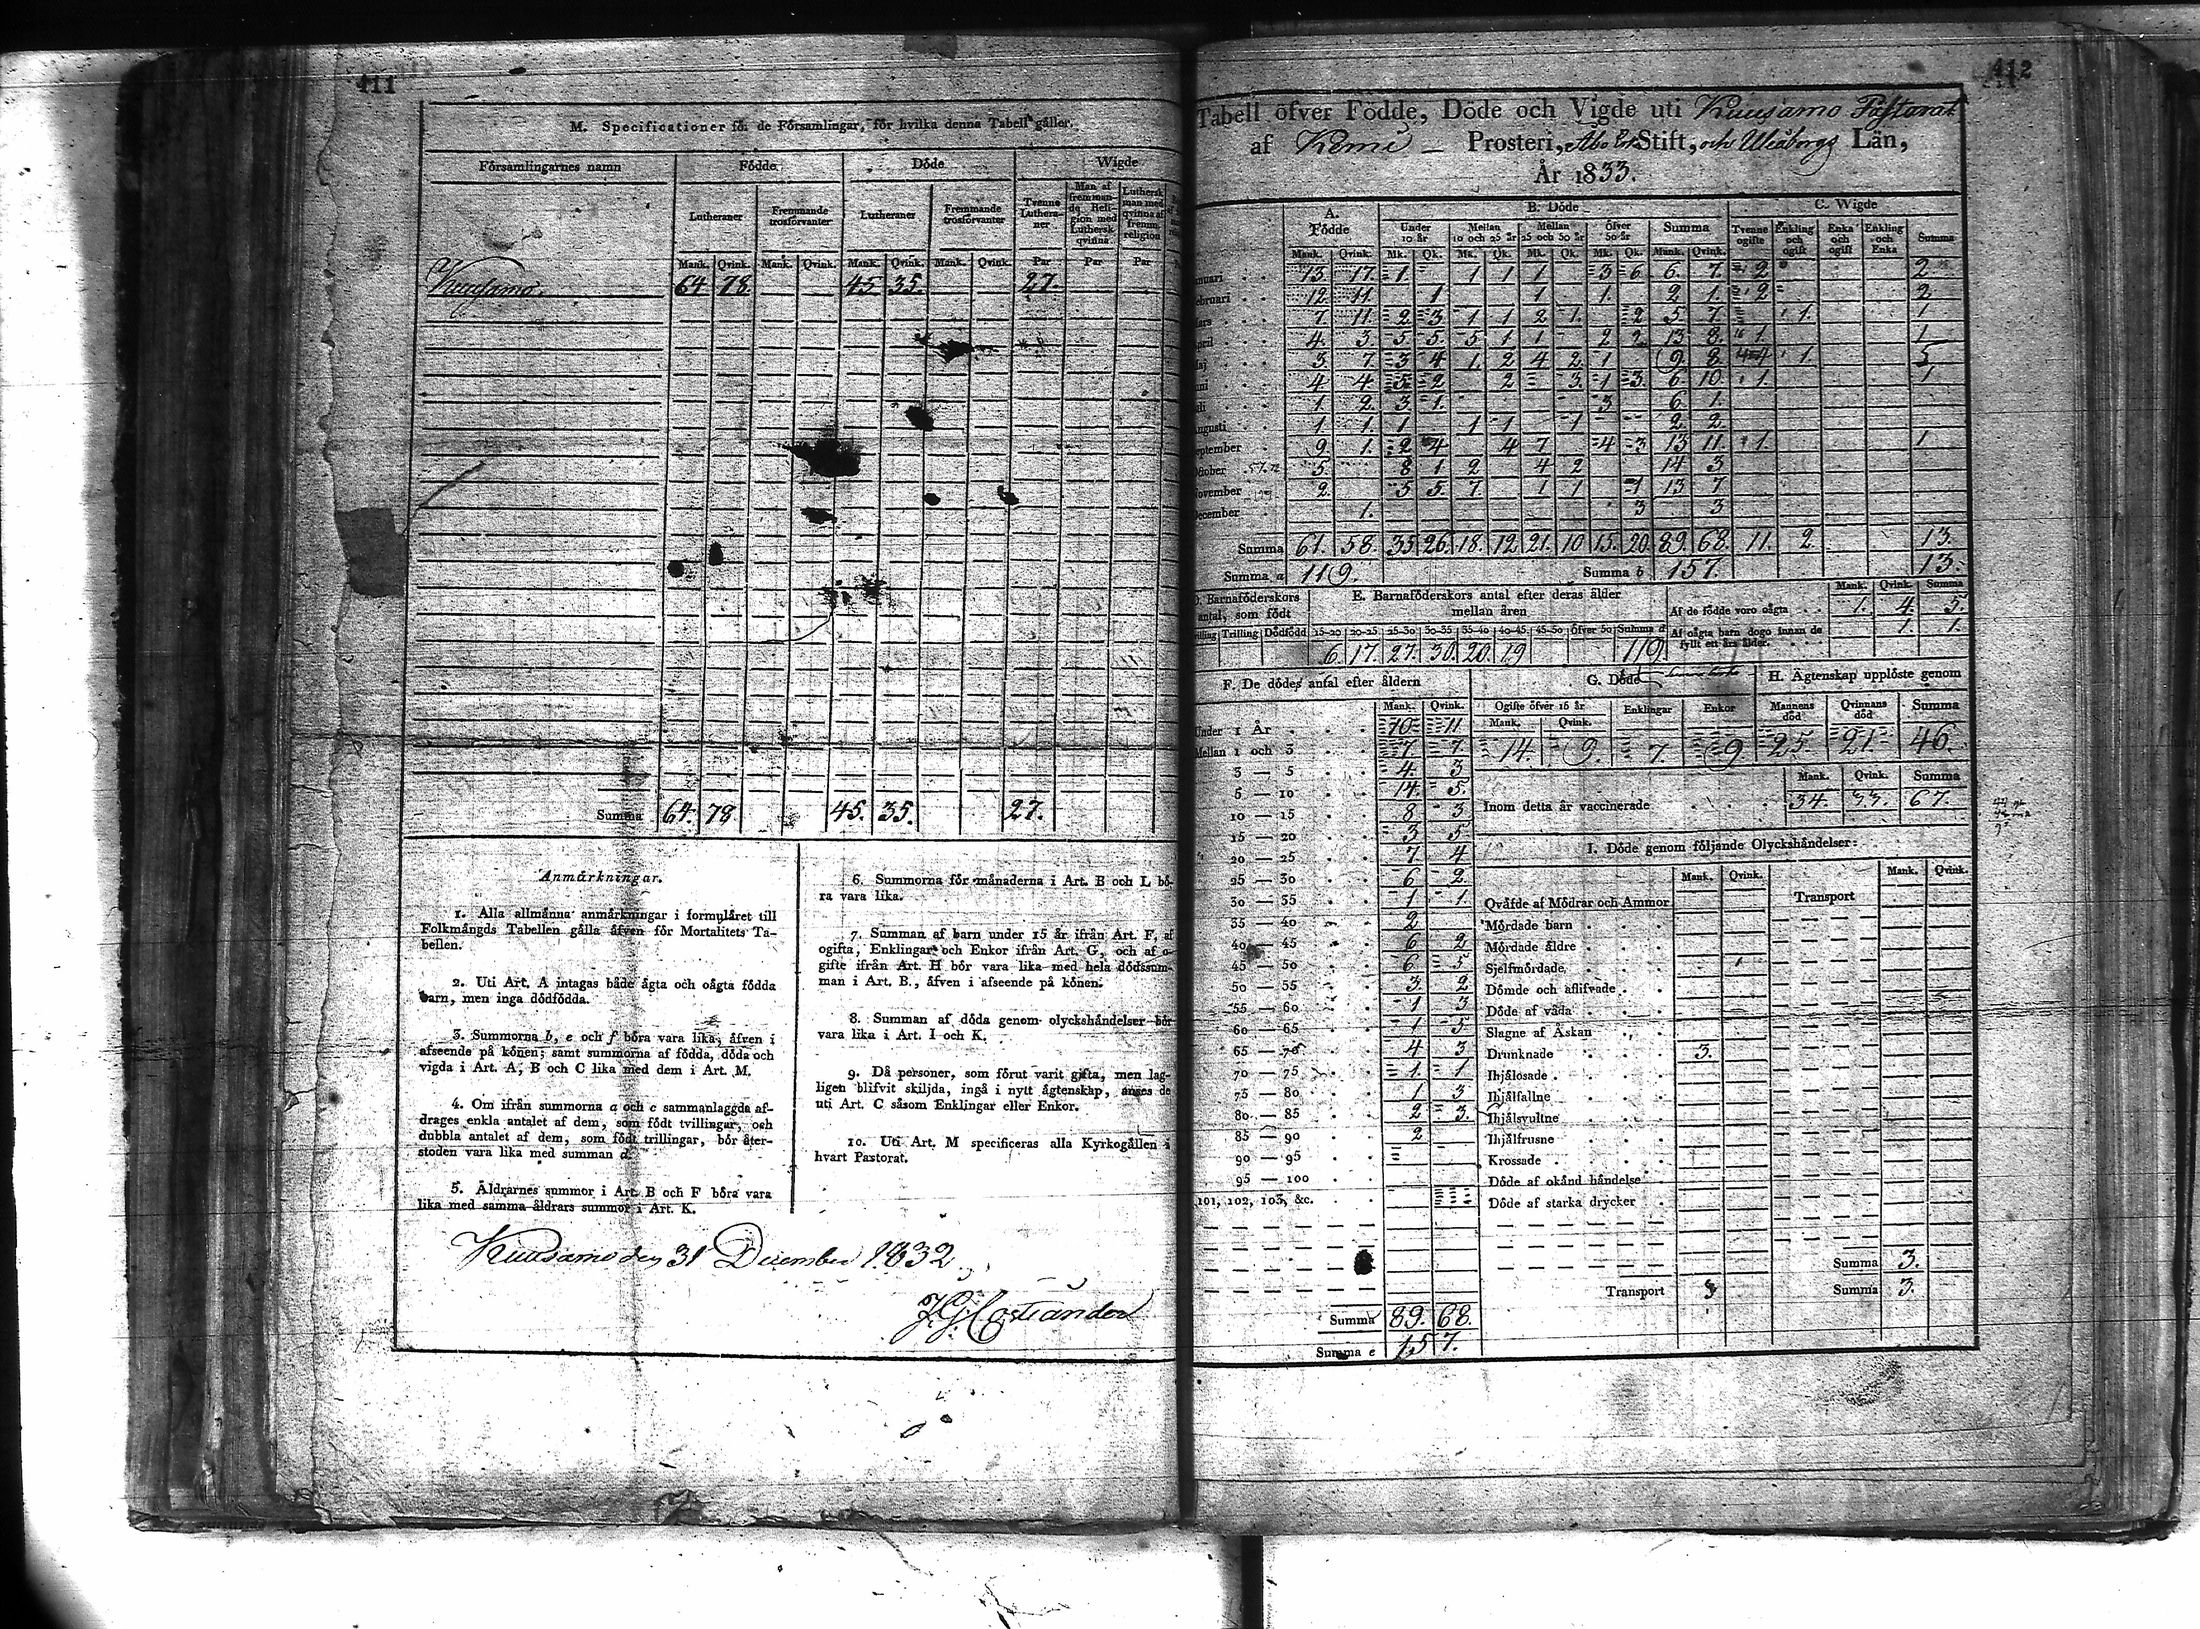 411
M. Specificationer för de Församlingar, för hvilka denna Tabell gäller.
Församlingarnes namn Födde Döde Wigde
Lutheraner Fremmande trosförvanter Lutheraner Fremmande trosförvanter Tvenne Lutheraner Man af fremmande Religion med Luthersk qvinna Luthersk man med qvinna af fremm. religion
Mank. Qvink. Mank. Qvink. Mank. Qvink. Mank. Qvink. Par Par Par
Kuusamo. 64 78. 45 35. 27.
Summa 64. 78 45. 35. 27.
Anmärkningar.
1. Alla allmänna anmärkningar i formuläret till
Folkmängds Tabellen gälla äfven för Mortalitets Ta-
bellen.
2. Uti Art. A intagas både ägta och oägta födda
barn, men inga dödfödda.
3. Summorna b, e och f böra vara lika, äfven i
afseende på könen; samt summorna af födda, döda och
vigda i Art. A, B och C lika med dem i Art. M.
4. Om ifrån summorna a och c sammanlaggda af-
drages enkla antalet af dem, som födt tvillingar, och
dubbla antalet af dem, som födt trillingar, bör åter-
stoden vara lika med summan d.
5. Äldrarnes summor i Art. B och F böra vara
lika med samma äldrars summor i Art. K.
6. Summorna för månaderna i Art. B och L bö-
ra vara lika.
7. Summan af barn under 15 år ifrån Art. F, af
ogifta, Enklingar och Enkor ifrån Art. G, och af
gifte ifrån Art. H bör vara lika med hela dödssum-
man i Art. B., äfven i afseende på könen.
8. Summan af döda genom olyckshändelser bör
vara lika i Art. I och K.
9. Då personer, som förut varit gifta, men lag-
ligen blifvit skiljda, ingå i nytt ägtenskap, anses de
uti Art. C såsom Enklingar eller Enkor.
10. Uti Art. M specificeras alla Kyrkogällen i
hvart Pastorat.
Kuusamo den 31 December 1832
412
Tabell öfver Födde, Döde och Vigde uti Kuusamo Pastorat
af Kemi Prosteri, Åbo Stift, och Uleåborgs Län,
År 1833.
A. Födde B. Döde C. Wigde
Under 10 år Mellan 10 och 25 år Mellan 25 och 50 år Öfver 50 år Summa Tvenne ogifte Enkling och ogift Enka och ogift Enkling och Enka Summa
Mank. Qvink. Mk. Qk. Mk. Qk. Mk. Qk. Mk. Qk. Mank. Qvink.
Januari 13 17 1 1 1 1 3 6 6. 7. 2 2
Februari 12 11 1 1 1. 2 1. 2 2
Mars 7. 11 2 3 1 1 2 1. 2 5 7. 1. 1
April 4. 3. 5 5. 5 1 1 2 2 13 8. 1. 1
Maj 3. 7. 3 4 1. 2 4 2 1 9. 8 4 1. 5
Juni 4 4. 5 2 2 3. 1 3. 6. 10. 1. 1
Juli 1. 2. 3 1. 3 6 1.
Augusti 1. 1. 1 1 1 1 2 2
September 9 1. 2 4 4 7 4 3 13 11. 1. 1
Oktober 5. 8 1 2 4 2 14 3
November 2. 5 5. 7. 1 1 1 13 7
December 1. 3 3
Summa 61. 58. 35. 26. 18. 12. 21. 10 15. 20. 89. 68. 11. 2. 13.
Summa a 119. Summa b 157. 13.
D. Barnaföderskors antal, som födt
Tvilling Trilling Dödfödd
E. Barnaföderskors antal efter deras ålder mellan åren
15-20 20-25 25-30 30-35 35-40 40-45 45-50 Öfver 50 Summa d
6. 17. 27. 30. 20. 19 119.
Mank. Qvink. Summa
Af de födde voro oägta 1. 4. 5.
Af oägta barn dogo innan de fyllt en års ålder. 1. 1.
F. De dödes antal efter åldern
Mank. Qvink.
Under 1 År 10 11
Mellan 1 och 3 7 7.
3 — 5 4. 3
5 — 10 14. 5.
10 — 15 8 3
15 — 20 3 5
20 — 25 7. 4
25 — 30 6 2
30 — 35 1 1
35 — 40 2
40 — 45 6 2
45 — 50 6. 5
50 — 55 3. 2
55 — 60 1 3
60 — 65 1 5
65 — 70 4 3
70 — 75 1. 1
75 — 80 1 3
80 — 85 2 3.
85 — 90 2
90 — 95
95 — 100
101, 102, 103, &c.
Summa 89. 68.
Summa e 157.
G. Döde
Ogifte öfver 15 år Enklingar Enkor
Mank. Qvink.
14. 9. 7. 9
H. Ägtenskap upplöste genom
Mannens död Qvinnans död Summa
25 21 46.
Mank. Qvink. Summa
Inom detta år vaccinerade 34. 33. 67.
I. Döde genom följande Olyckshändelser:
Mank. Qvink. Mank. Qvink.
Qväfde af Mödrar och Ammor Transport
Mördade barn
Mördade äldre
Sjelfmördade
Dömde och aflifvade
Döde af våda
Slagne af Åskan
Drunknade 3.
Ihjälosade
Ihjälfallne
Ihjälsvultne
Ihjälfrusne
Krossade
Döde af okänd händelse
Döde af starka drycker
Summa 3.
Transport 3 Summa 3.